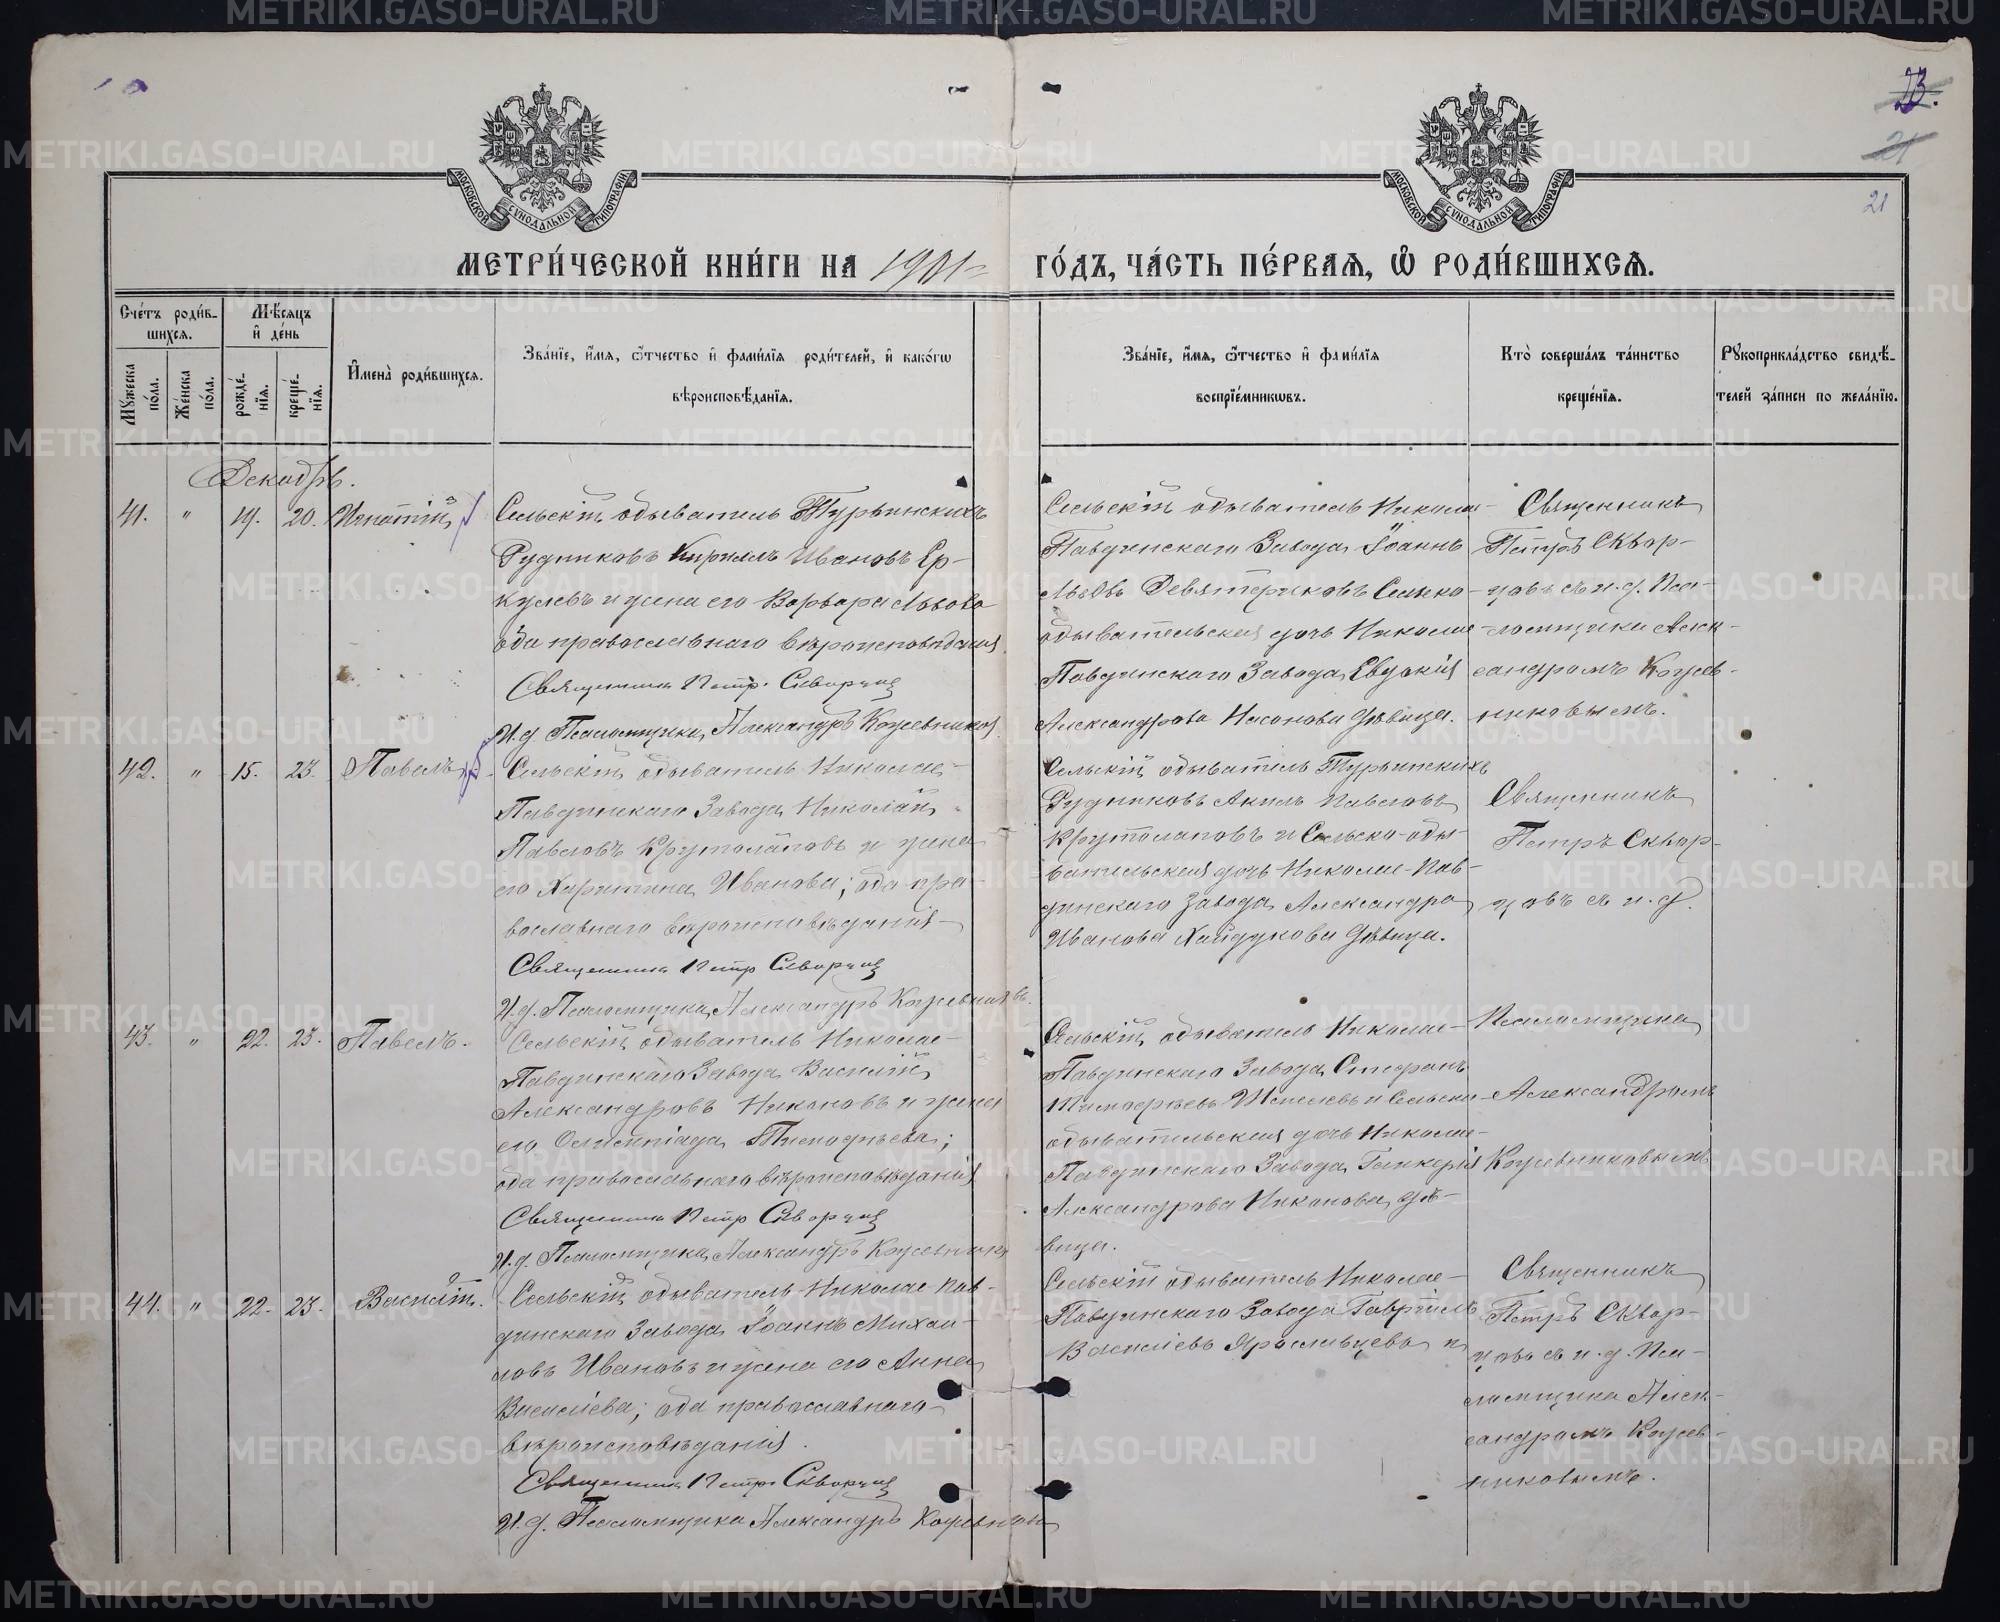 23.
21
21
МОСКОВСКОЙ СУНОДАЛЬНОЙ ТИПОГРАФІИ
МОСКОВСКОЙ СУНОДАЛЬНОЙ ТИПОГРАФІИ
МЕТРИ́ЧЕСКОЙ КНИ́ГИ НА 1901 ГО́ДЪ, ЧА́СТЬ ПЕ́РВАЯ, Ѡ РОДИ́ВШИХСЯ.
Сче́тъ роди́в-
шихся.
Мѣ́сяцъ
и де́нь
Му́жеска по́ла.
Же́нска по́ла.
рожде́-
нїя.
креще́-
нїя.
Имена̀ роди́вшихся.
Зва́нїе, и́мя, ѻ́тчество и фами́лїя роди́телей, и како́гѡ
вѣроисповѣ́данїя.
Зва́нїе, и́мя, ѻ́тчество и фами́лїя
воспрїе́мникѡвъ.
Кто̀ соверша́лъ та́инство
креще́нїя.
Рукоприкла́дство свидѣ́-
телей за́писи по жела́нїю.
Декабрь.
41. " 19. 20. Игнатій
Сельскій обыватель Турьинскихъ
Рудниковъ Кириллъ Ивановъ Ер-
кулевъ и жена его Варвара Львова
оба православнаго вѣроисповѣданія
Священникъ Петръ Скворцов
И.д. Псаломщика Александръ Кожевников
Сельскій обыватель Николае-
Павдинскаго Завода Іоаннъ
Львовъ Девятериковъ Сельско-
обывательская дочь Николае-
Павдинскаго Завода Евдокія
Александрова Насонова дѣвица.
Священникъ
Петръ Сквор-
цовъ съ и.д. Пса-
ломщика Алек-
сандромъ Кожев-
никовымъ.
42. " 15. 23. Павелъ
Сельскій обыватель Николае-
Павдинскаго Завода Николай
Павловъ Крутолаповъ и жена
его Харитина Иванова; оба пра-
вославнаго вѣроисповѣданія
Священникъ Петр Скворцов
И.д. Псаломщика Александръ Кожевниковъ.
Сельскій обыватель Турьинскихъ
Рудниковъ Акилъ Павловъ
Крутолаповъ и Сельско-обы-
вательская дочь Николае-Пав-
динскаго Завода Александра
Иванова Хайдукова дѣвица.
Священникъ
Петръ Сквор-
цовъ съ и.д.
43. " 22. 23. Павелъ.
Сельскій обыватель Николае-
Павдинскаго Завода Василій
Александровъ Никоновъ и жена
его Олимпіада Тимофѣева;
оба православнаго вѣроисповѣданія
Священникъ Петр Скворцов
И.д. Псаломщика Александръ Кожевников
Сельскій обыватель Николае-
Павдинскаго Завода Стефанъ
Тимофѣевъ и Сельско-
обывательская дочь Николае-
Павдинскаго Завода Гликерія
Александрова Никонова, дѣ-
вица.
Псаломщика
Александромъ
Кожевниковымъ
44. " 22. 23. Василій.
Сельскій обыватель Николае-Пав-
динскаго Завода Іоаннъ Михаи-
ловъ Ивановъ и жена его Анна
Васильева; оба православнаго
вѣроисповѣданія.
Священникъ Петр Скворцов
И.д. Псаломщика Александръ Кожевников
Сельскій обыватель Николае-
Павдинскаго Завода Гавріилъ
Василіевъ Ярославцевъ и
Священникъ
Петръ Сквор-
цовъ съ и.д. Пса-
ломщика Алек-
сандромъ Кожев-
никовымъ.